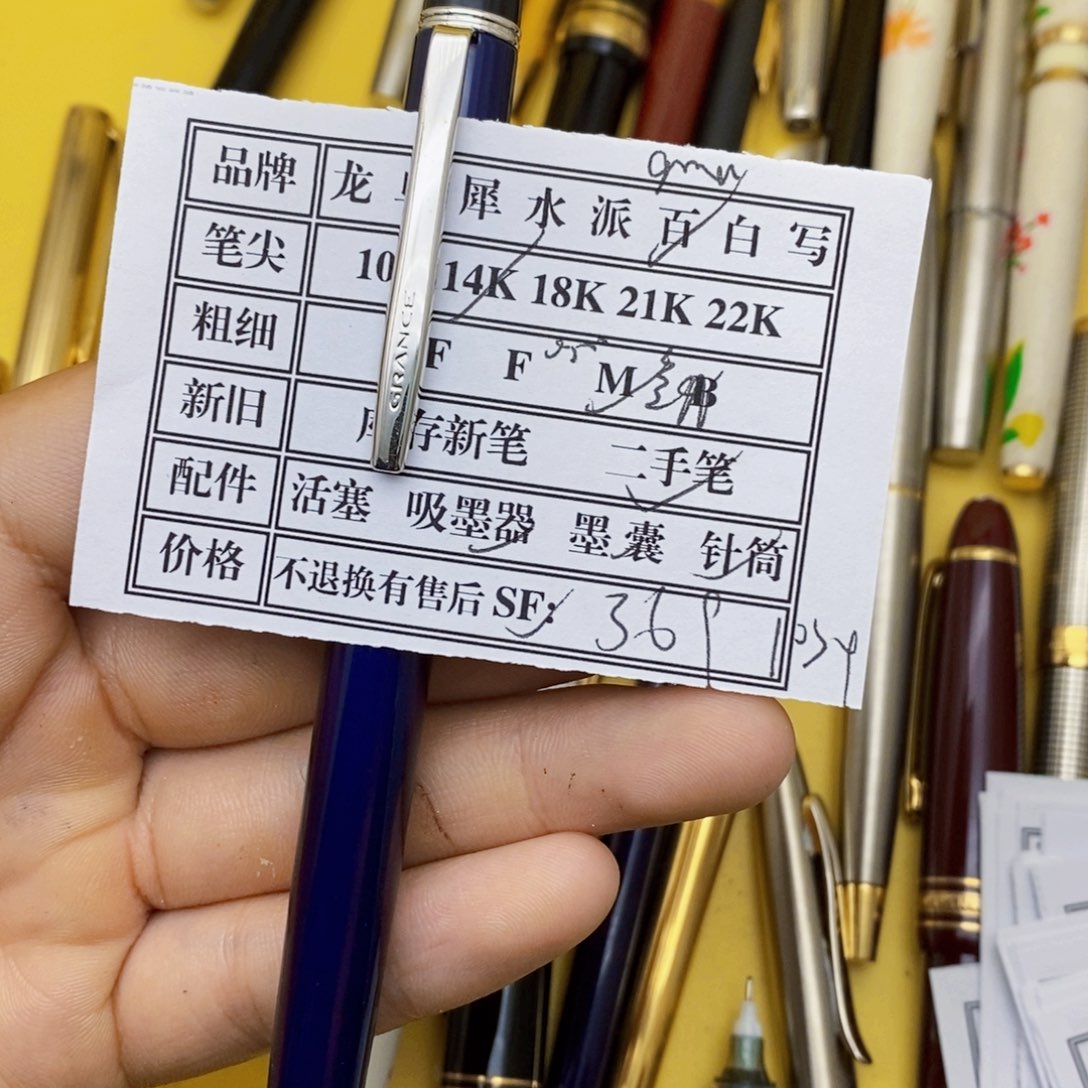 品牌 龙 犀 水 派 百 白 写
笔尖 10 14K 18K 21K 22K
粗细 F F M B
新旧 库存新笔 二手笔
配件 活塞 吸墨器 墨囊 针筒
价格 不退换有售后 SF: 369
GRANCE